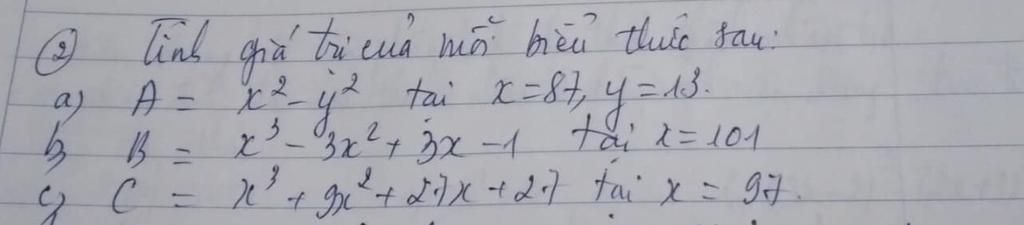 ② Tính giá trị của mỗi biểu thức sau:
a) A = x² - y² tại x = 87, y = 13.
b) B = x³ - 3x² + 3x - 1 tại x = 101
c) C = x³ + 9x² + 27x + 27 tại x = 97.